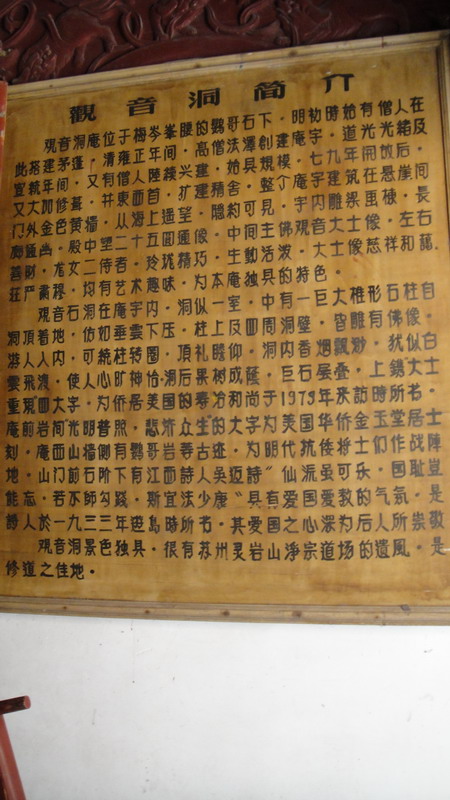 觀音洞简介
观音洞庵位于梅岑峯腰的鹦哥石下。明初時始有僧人在
此搭建茅蓬。清雍正年间，高僧法澤創建庵宇，道光光緒及
宣統年间，又有僧人陸續兴建，始具規模。七九年開放后，
又大加修葺，并東面首，扩建精舍，整个庵宇建筑在悬崖间
门外金色黄墙，从海上遥望，隐约可见，宇内雕梁画棟，長
廊通幽，殿中塑二十五圆通像，中间主佛观音大士像，左右
善財，龙女二侍者，玲珑精巧，生動活泼，大士像慈祥和藹，
荘严肅穆，均有艺术趣味，为本庵独具的特色。
观音石洞在庵宇内，洞似一室，中有一巨大椎形石柱自
洞頂着地，仿如垂雲下压，柱上及四周洞壁，皆雕有佛像。
游人入内，可繞柱转圈，頂礼瞻仰，洞内香烟飘渺，犹似白
雲飛渡，使人心旷神怡洞后果树成蔭，巨石层叠，上鐫大士
重現四大字，为侨居美国的寿冶和尚于1979年来訪時所书。
庵前岩间光明普照，悲济众生的大字为美国华侨金玉堂居士
刻，庵西山墙側有鹦哥岩等古迹，为明代抗倭将士们作战陣
地，山门前石阶下有江西詩人吴迈詩“仙流虽可乐，国耻豈
能忘，若不師勾踐，斯宜法少康”具有爱国爱教的气氛，是
詩人於一九三三年遊島時所书，其爱国之心深为后人所崇敬
观音洞景色独具，很有苏州灵岩山净宗道场的遺風，是
修道之佳地。